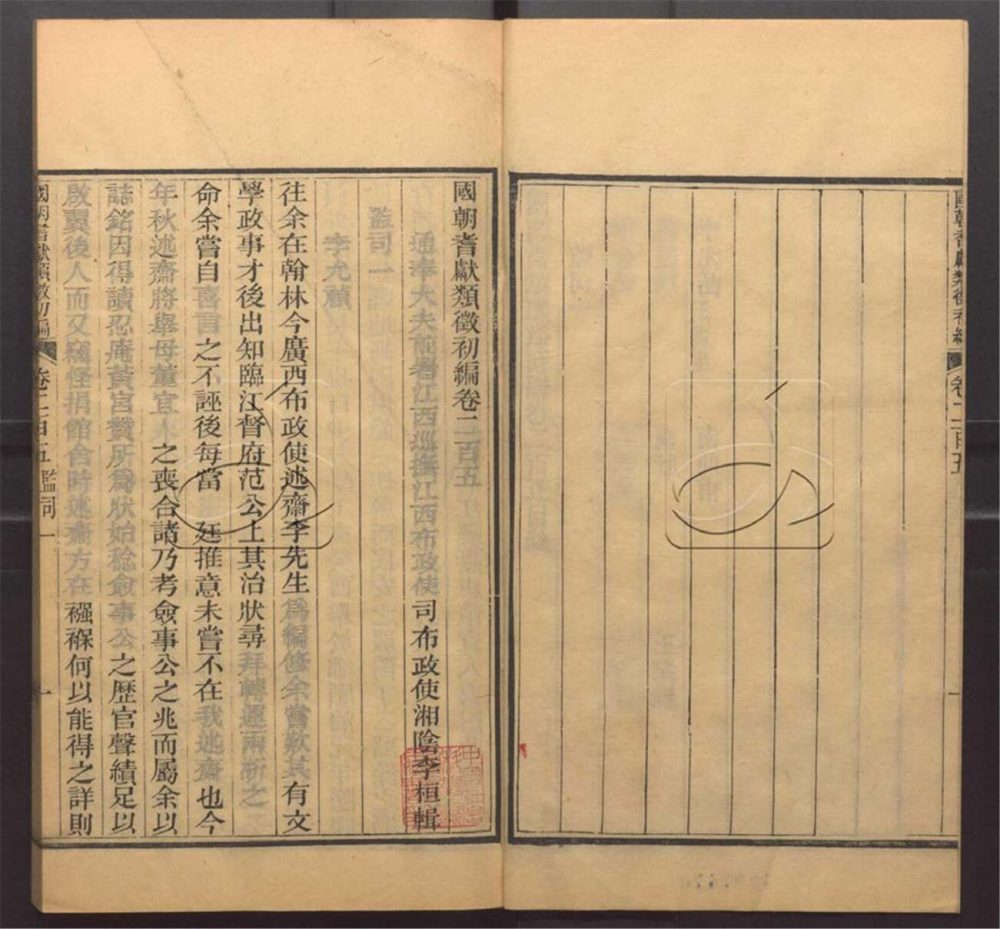 國朝耆獻類徵初編 卷二百五
國朝耆獻類徵初編卷二百五
通奉大夫前署江西巡撫江西布政使司布政使湘陰李桓輯
監司一
李允禎
往余在翰林今廣西布政使述齋李先生爲編修余嘗歎其有文
學政事才後出知臨江督府范公上其治狀尋拜轉運兩浙之
命余嘗自喜言之不誣後每當 廷推意未嘗不在我述齋也今
年秋述齋將舉母董宜人 之喪合諸乃考僉事公之兆而屬余以
誌銘因得讀忍庵黃宮贊所爲狀始稔僉事公之歷官聲績足以
啟翼後人而又竊怪捐館舍時述齋方在襁褓何以能得之詳則
國朝耆獻類徵初編 卷二百五 監司一 一